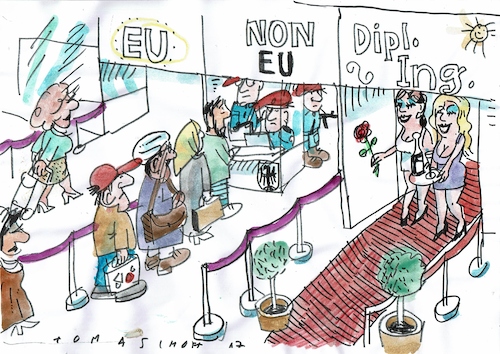 EU
NON
EU
Dipl.
Ing.
TOMASCHOFF 17